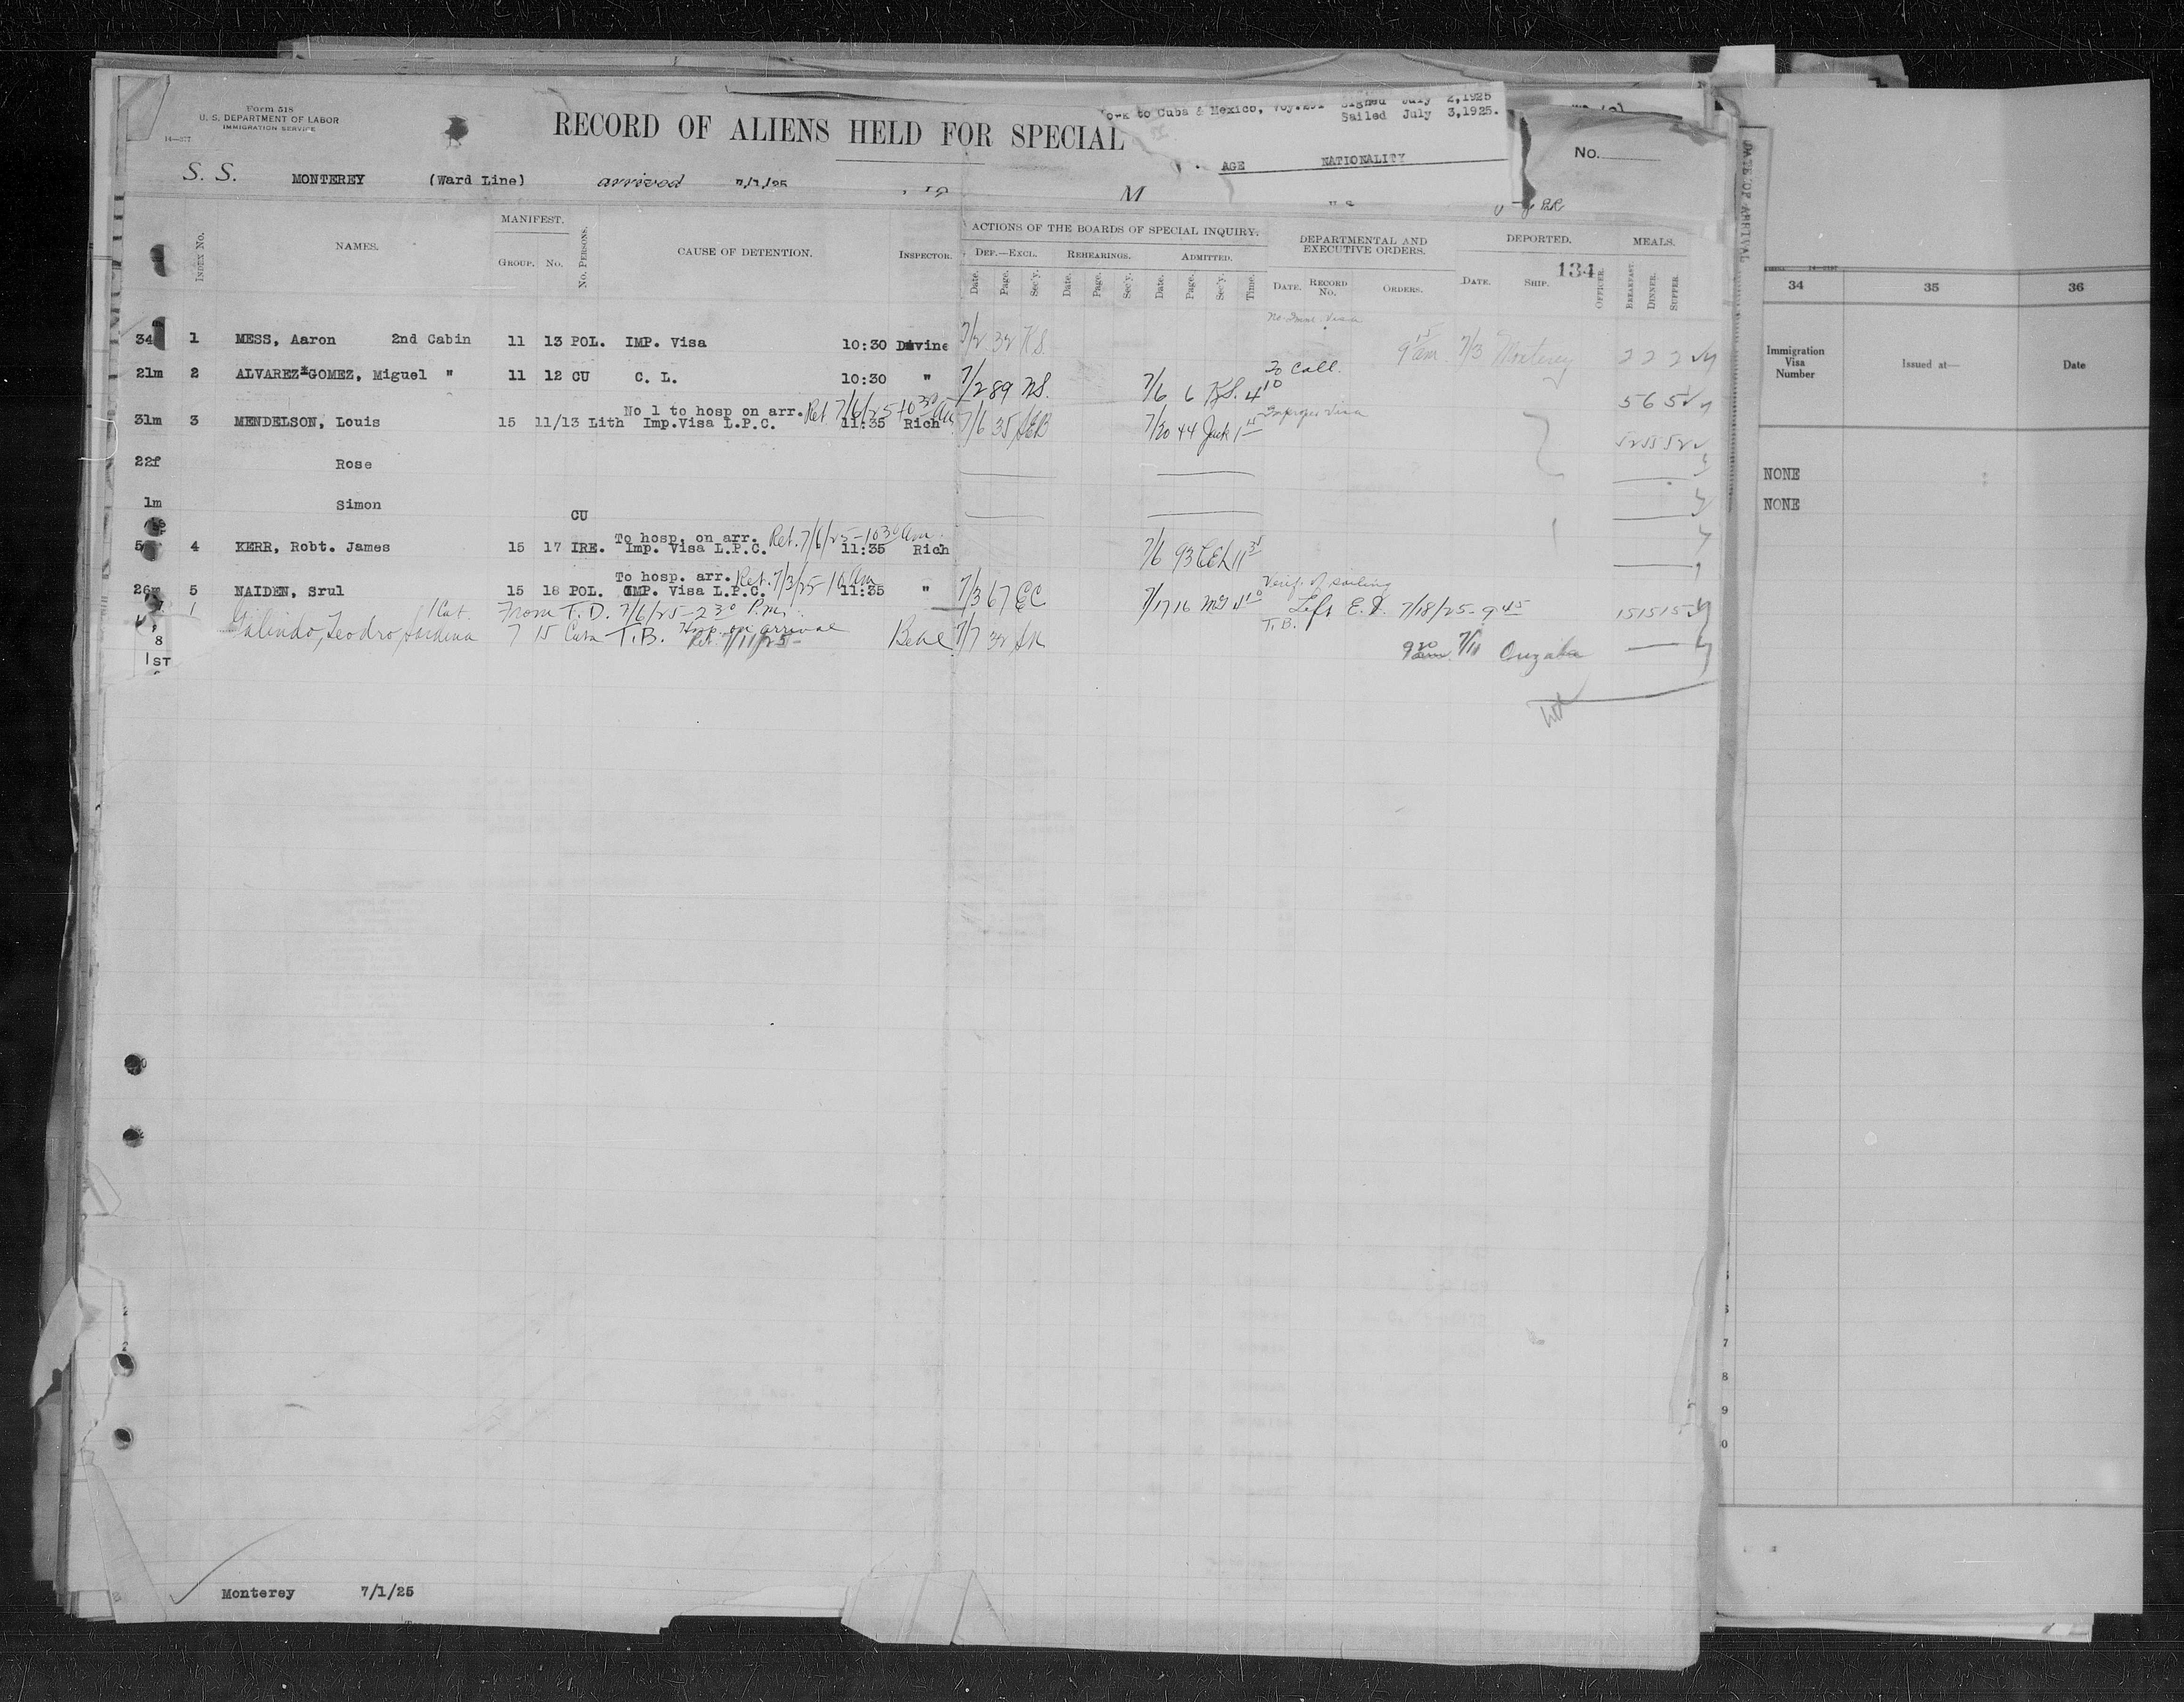 Form 518
U. S. DEPARTMENT OF LABOR
IMMIGRATION SERVICE
RECORD OF ALIENS HELD FOR SPECIAL
to Cuba & Mexico, Voy. Signed July 2,1925
Sailed July 3,1925.
AGE NATIONALITY
No.
S. S. MONTEREY (Ward Line) arrived 7/1/25 , 19 M
INDEX No. NAMES. MANIFEST. GROUP. No. No. PERSONS. CAUSE OF DETENTION. INSPECTOR.
ACTIONS OF THE BOARDS OF SPECIAL INQUIRY.
DEF.—EXCL. REHEARINGS. ADMITTED.
Date. Page. Sec'y. Date. Page. Sec'y. Date. Page. Sec'y. Time.
DEPARTMENTAL AND EXECUTIVE ORDERS.
DATE. RECORD No. ORDERS.
DEPORTED.
DATE. SHIP. 134 OFFICER.
MEALS.
BREAKFAST. DINNER. SUPPER.
34 1 MESS, Aaron 2nd Cabin 11 13 POL. IMP. Visa 10:30 Devine 7/2 32 K.S. 9 15 am 7/3 Monterey 2 2 2
21m 2 ALVAREZ*GOMEZ, Miguel " 11 12 CU C. L. 10:30 " 7/2 89 7/6 6 4 10 To Call. 5 6 5
No 1 to hosp on arr. Ret 7/6/25 10 30 Am
31m 3 MENDELSON, Louis 15 11/13 Lith Imp.Visa L.P.C. 11:35 Rich 7/6 35 7/20 44 Improper Visa 52 53 52
22f Rose
1m Simon
CU
To hosp. on arr. Ret. 7/6/25-10 30 am.
4 KERR, Robt. James 15 17 IRE. Imp. Visa L.P.C. 11:35 Rich 7/6 93
To hosp. arr. Ret. 7/3/25-10 am
26m 5 NAIDEN, Srul 15 18 POL. IMP. Visa L.P.C. 11:35 " 7/3 67 7/17 16 Verif. of sailing
1 Cat. From T. D. 7/6/25-2 30 P.m. Left E. I. 7/18/25-9 45 15 15 15
Galindo, Teodro, 7 15 Cuba T.B. Hosp. on arrival Ret. 7/11/25- 7/7 32 T.B. 9 7/11 Orizaba
8
1ST
Monterey 7/1/25
DATE OF ARRIVAL
34 35 36
Immigration Visa Number Issued at— Date
NONE
NONE
7
8
9
0